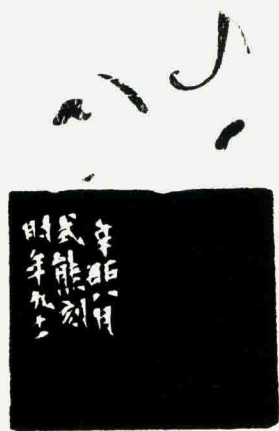 辛卯八月
式熊刻
時年九十一